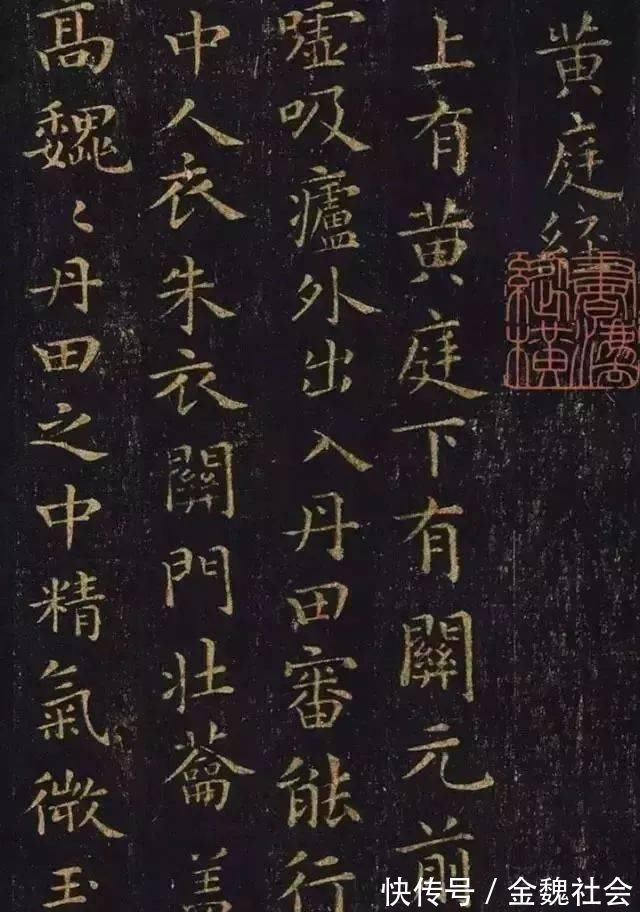 黄庭經
上有黄庭下有關元前
嘘吸廬外出入丹田審能行
中人衣朱衣關門壯蘥盖
高巍〻丹田之中精氣微玉
快传号 / 金魏社会